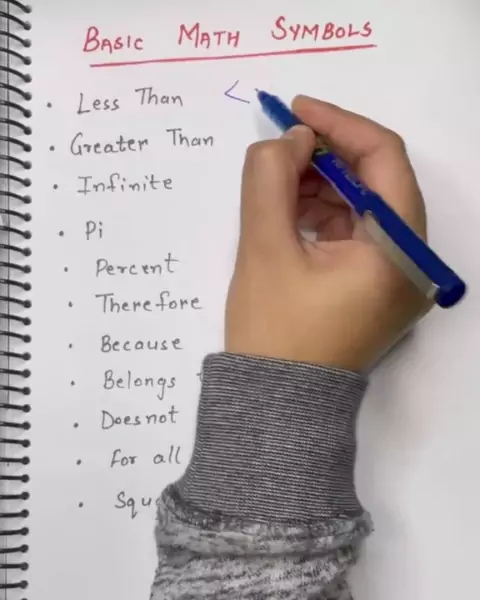 BASIC MATH SYMBOLS
• Less Than <
• Greater Than
• Infinite
• Pi
• Percent
• Therefore
• Because
• Belongs
• Does not
• For all